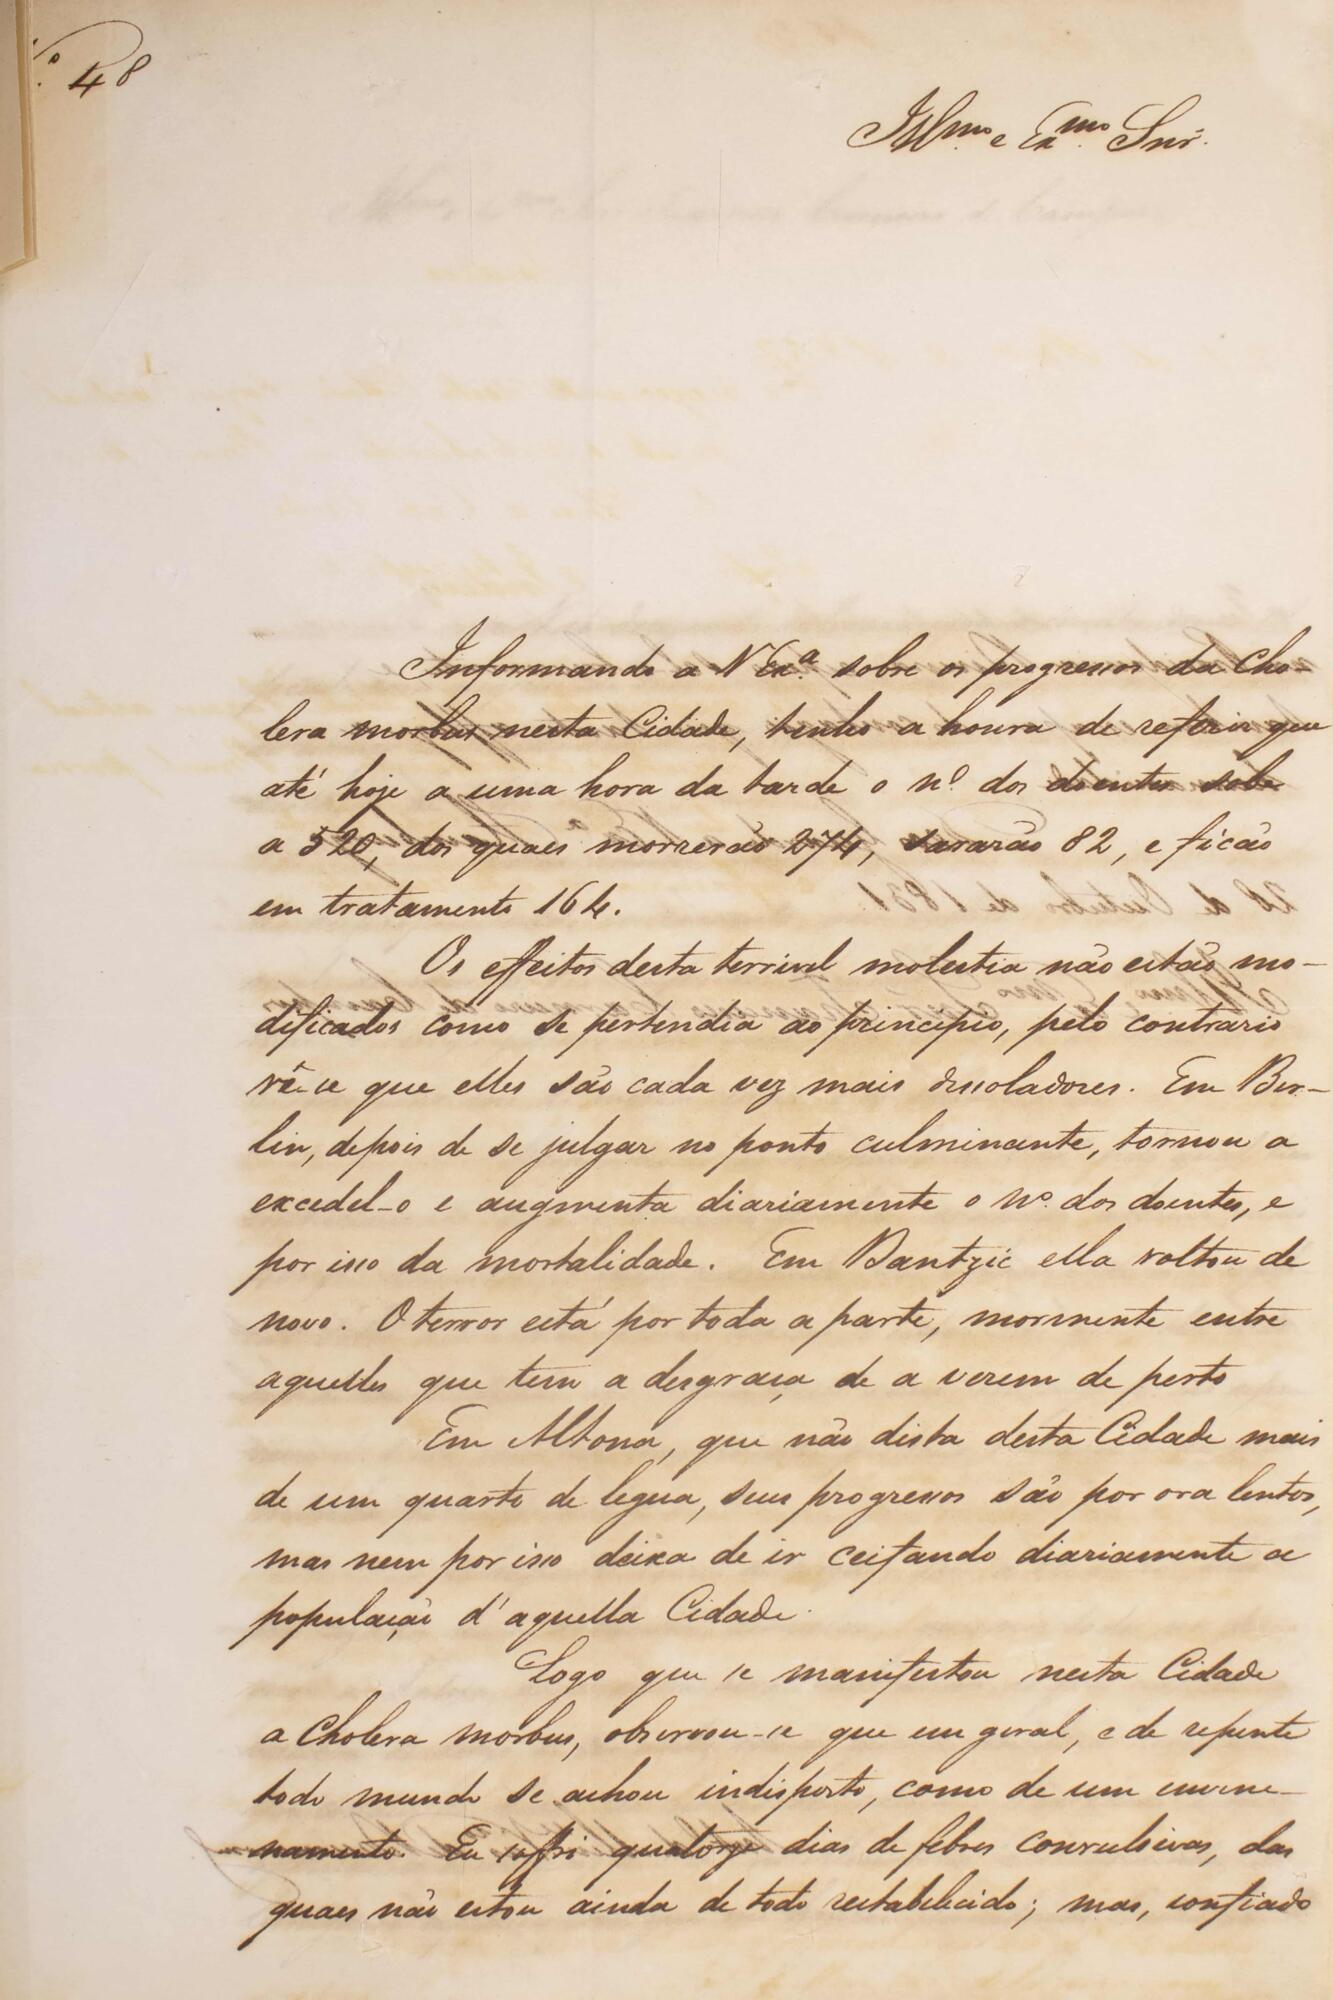 N.º 48
Illmo. e Exmo. Snr.
Informando a V Exa. sobre os progressos da Cho-
lera morbus nesta Cidade, tenho a honra de referir que
até hoje a uma hora da tarde o nº. dos doentes sobe
a 520, dos quaes morrerão 274, sararão 82, e ficão
em tratamento 164.
Os effeitos desta terrivel molestia não estão mo-
dificados como se pertendia ao principio, pelo contrario
vê-se que elles são cada vez mais dessoladores. Em Ber-
lin, depois de se julgar no ponto culminante, tornou a
excedel-o e augmenta diariamente o nº. dos doentes, e
por isso da mortalidade. Em Dantzic ella voltou de
novo. O terror está por toda a parte, mormente entre
aquelles que tem a desgraça de a verem de perto
Em Altona, que não dista desta Cidade mais
de um quarto de legua, seus progressos são por ora lentos,
mas nem por isso deixa de ir ceifando diariamente a
população d'aquella Cidade.
Logo que se manifestou nesta Cidade
a Cholera morbus, observou-se que em geral, e de repente
todo mundo se achou indisposto, como de um envene-
namento. Eu soffri quatorze dias de febres convulsivas, das
quaes não estou ainda de todo restabelecido; mas, confiado